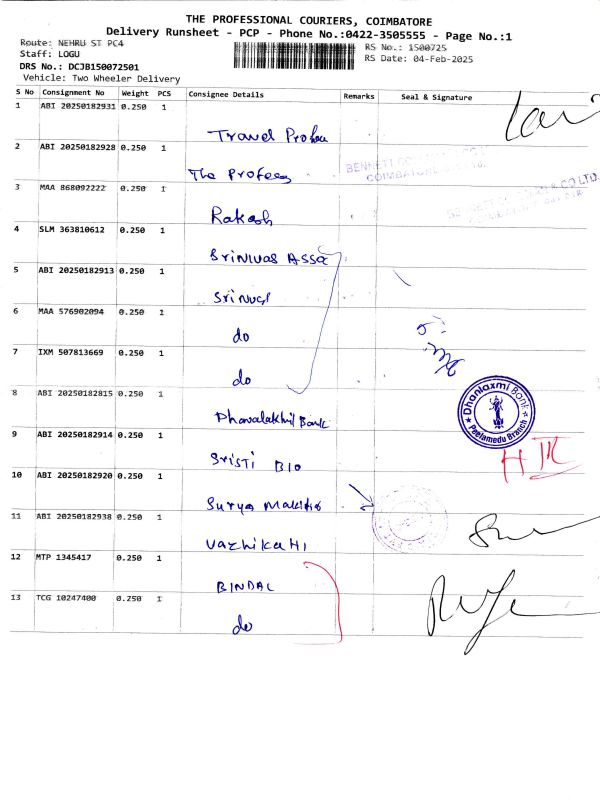 THE PROFESSIONAL COURIERS, COIMBATORE
Delivery Runsheet - PCP - Phone No.:0422-3505555 - Page No.:1
Route: NEHRU ST PC4
RS No.: 1500725
Staff: LOGU
RS Date: 04-Feb-2025
DRS No.: DCJB150072501
Vehicle: Two Wheeler Delivery
S No Consignment No Weight PCS Consignee Details Remarks Seal & Signature
1 ABI 20250182931 0.250 1
Travel
2 ABI 20250182928 0.250 1
The
BENNETT CO
COIMBATORE
3 MAA 868092222 0.250 1
Rakesh
BENNETT CO LTD.
4 SLM 363810612 0.250 1
Srinivas Assc
5 ABI 20250182913 0.250 1
6 MAA 576902094 0.250 1
do
7 IXM 507813669 0.250 1
do
8 ABI 20250182815 0.250 1
Bank
Dhanlaxmi Bank
Peelamedu Branch
9 ABI 20250182914 0.250 1
Sristi Bio
10 ABI 20250182920 0.250 1
Surya
11 ABI 20250182938 0.250 1
VazhikaHi
12 MTP 1345417 0.250 1
BINDAL
13 TCG 10247400 0.250 1
do